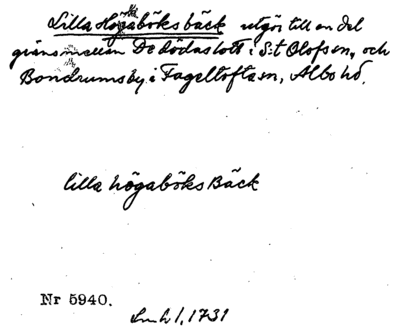 Lilla Högaböks bäck utgör till en del
gräns mellan De dödas lott i S:t Olofs sn, och
Bondrums by i Fågeltofta sn, Albo hd.
lilla högaböks Bäck
Nr 5940.
1, 1731